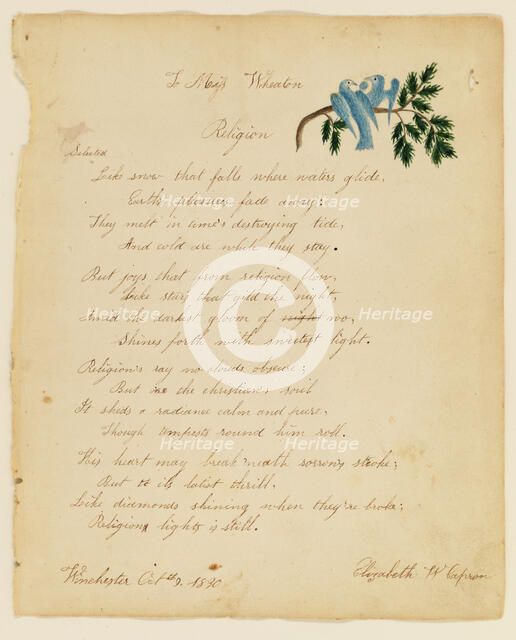 To Miss Wheaton
Religion
Selected
Like snow that falls where waters glide,
Earth's pleasures fade away:
They melt in time's destroying tide,
And cold are while they stay.
But joys that from religion flow,
Like stars that gild the night,
Amid the darkest gloom of night woo,
Shines forth with sweetest light.
Religion's ray no clouds obscure;
But the christian's soul
It sheds a radiance calm and pure,
Though tempests round him roll.
His heart may break 'neath sorrow's stroke;
But to its latest thrill,
Like diamonds shining when they're broke;
Religion lights is still.
Winchester Oct 9. 1830
Elizabeth W Capron
Heritage
Heritage
Heritage
Heritage
Heritage
Heritage
Heritage
Heritage
C